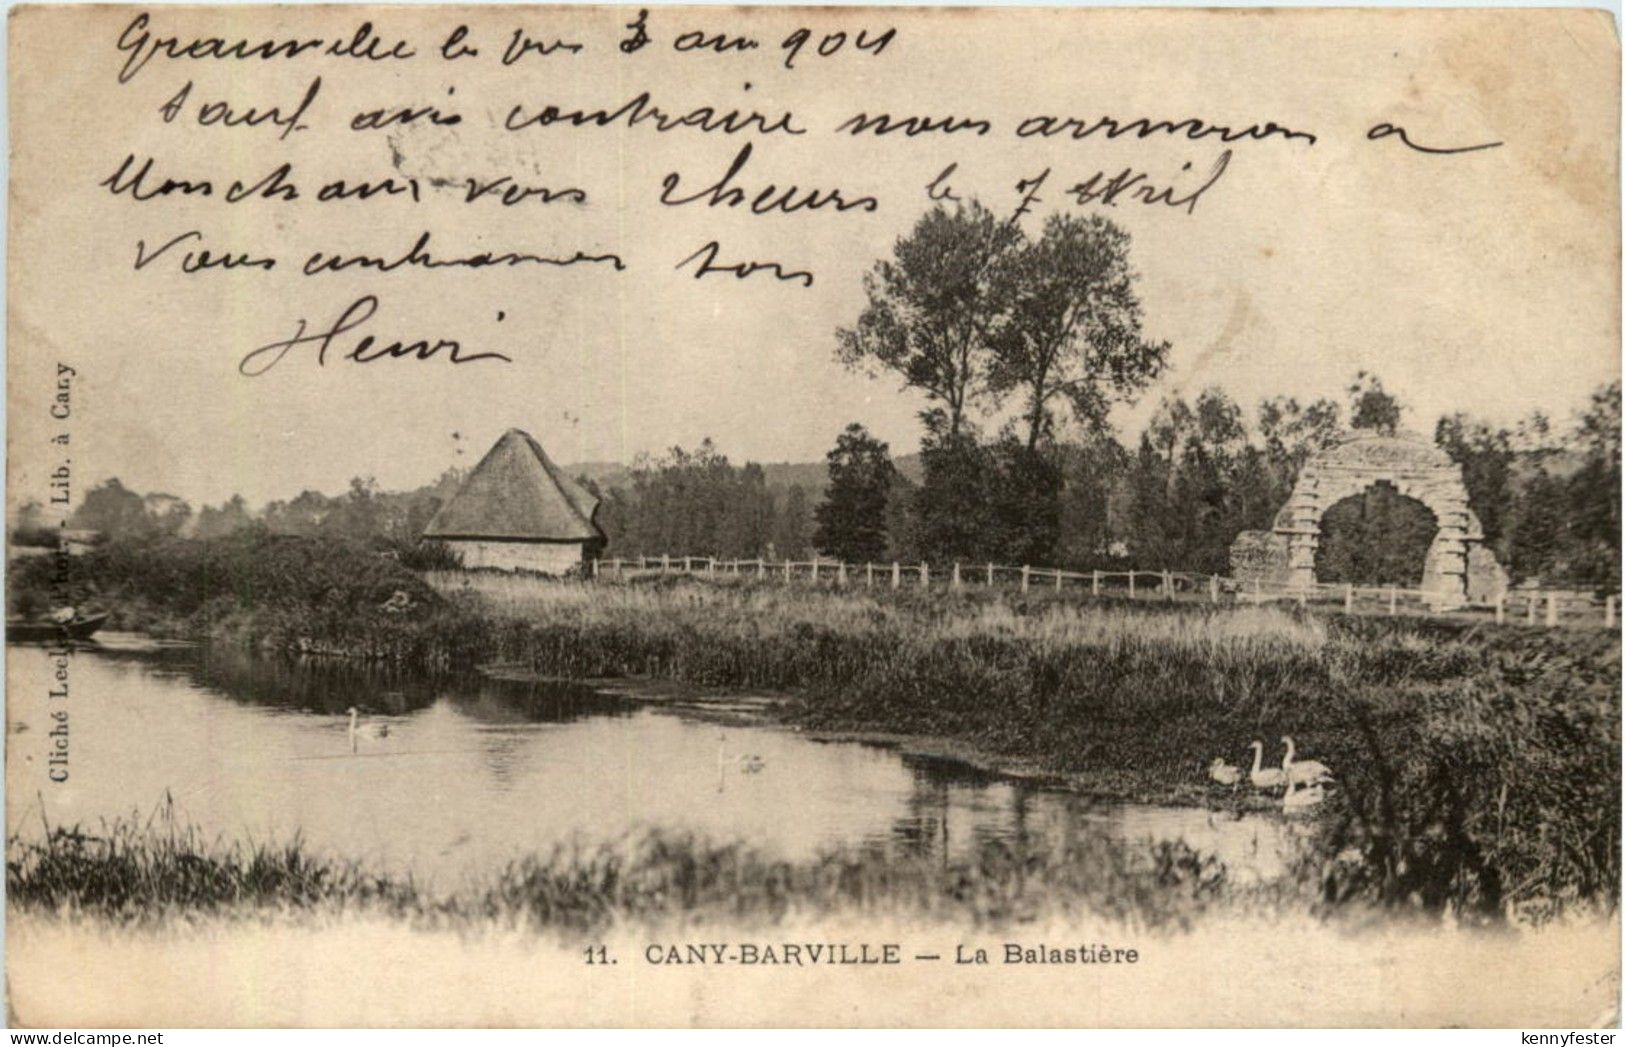 Granville le 3 904
Sauf avis contraire nous arriverons a
Monchaux vers 2 heures le 7 Avril
Vous embrasson tous
Henri
Cliché Lecl Phot. - Lib. à Cany
11. CANY-BARVILLE — La Balastière
delcampe.net
kennyfester